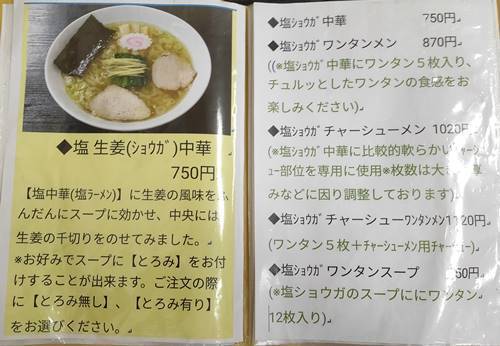 ◆塩 生姜(ｼｮｳｶﾞ)中華
750円
【塩中華(塩ラーメン)】に生姜の風味をふ
んだんにスープに効かせ、中央には
生姜の千切りをのせてみました。
※お好みでスープに【とろみ】をお付
けすることが出来ます。ご注文の際
に【とろみ無し】、【とろみ有り】
をお選びください。
◆塩ｼｮｳｶﾞ中華 750円
◆塩ｼｮｳｶﾞワンタンメン 870円
((※塩ｼｮｳｶﾞ中華にワンタン５枚入り、
チュルッとしたワンタンの食感をお
楽しみください)
◆塩ｼｮｳｶﾞチャーシューメン 1020円
(※塩ｼｮｳｶﾞ中華に比較的軟らかいﾁｬｰｼ
ｭｰ部位を専用に使用※枚数は大き
みなどに因り調整しております)
◆塩ｼｮｳｶﾞチャーシューﾜﾝﾀﾝﾒﾝ1120円
(ワンタン５枚＋ﾁｬｰｼｭｰﾒﾝ用ﾁｬｰｼｭｰ)
◆塩ｼｮｳｶﾞワンタンスープ 50円
(※塩ショウガのスープににワンタン
12枚入り)